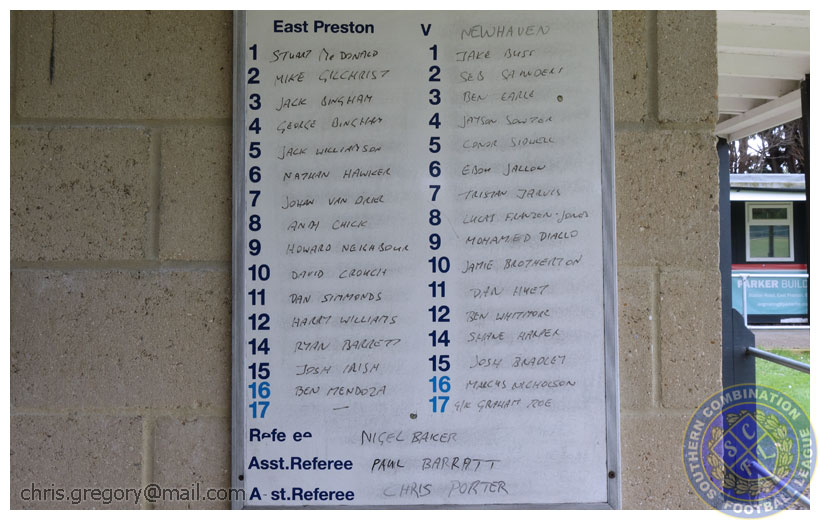 East Preston V NEWHAVEN
1 STUART McDONALD 1 JAKE BUSS
2 MIKE GILCHRIST 2 SEB SAUNDERS
3 JACK BINGHAM 3 BEN EARLE
4 GEORGE BINGHAM 4 JAYSON SOWTER
5 JACK WILLIAMSON 5 CONOR SIDWELL
6 NATHAN HAWKER 6 EBOU JALLOW
7 JOHAN VAN DRIER 7 TRISTAN JARVIS
8 ANDY CHICK 8 LUCAS FRANZON-JONES
9 HOWARD NEIGHBOUR 9 MOHAMED DIALLO
10 DAVID CROUCH 10 JAMIE BROTHERTON
11 DAN SIMMONDS 11 DAN HUET
12 HARRY WILLIAMS 12 BEN WHITMORE
14 RYAN BARRETT 14 SHANE HARPER
15 JOSH IRISH 15 JOSH BRADLEY
16 BEN MENDOZA 16 MARCUS NICHOLSON
17 — 17 G/K GRAHAM ROE
Refe ee NIGEL BAKER
Asst.Referee PAUL BARRATT
A st.Referee CHRIS PORTER
PARKER BUILD
chris.gregory@mail.com
SOUTHERN COMBINATION FOOTBALL LEAGUE
SCFL